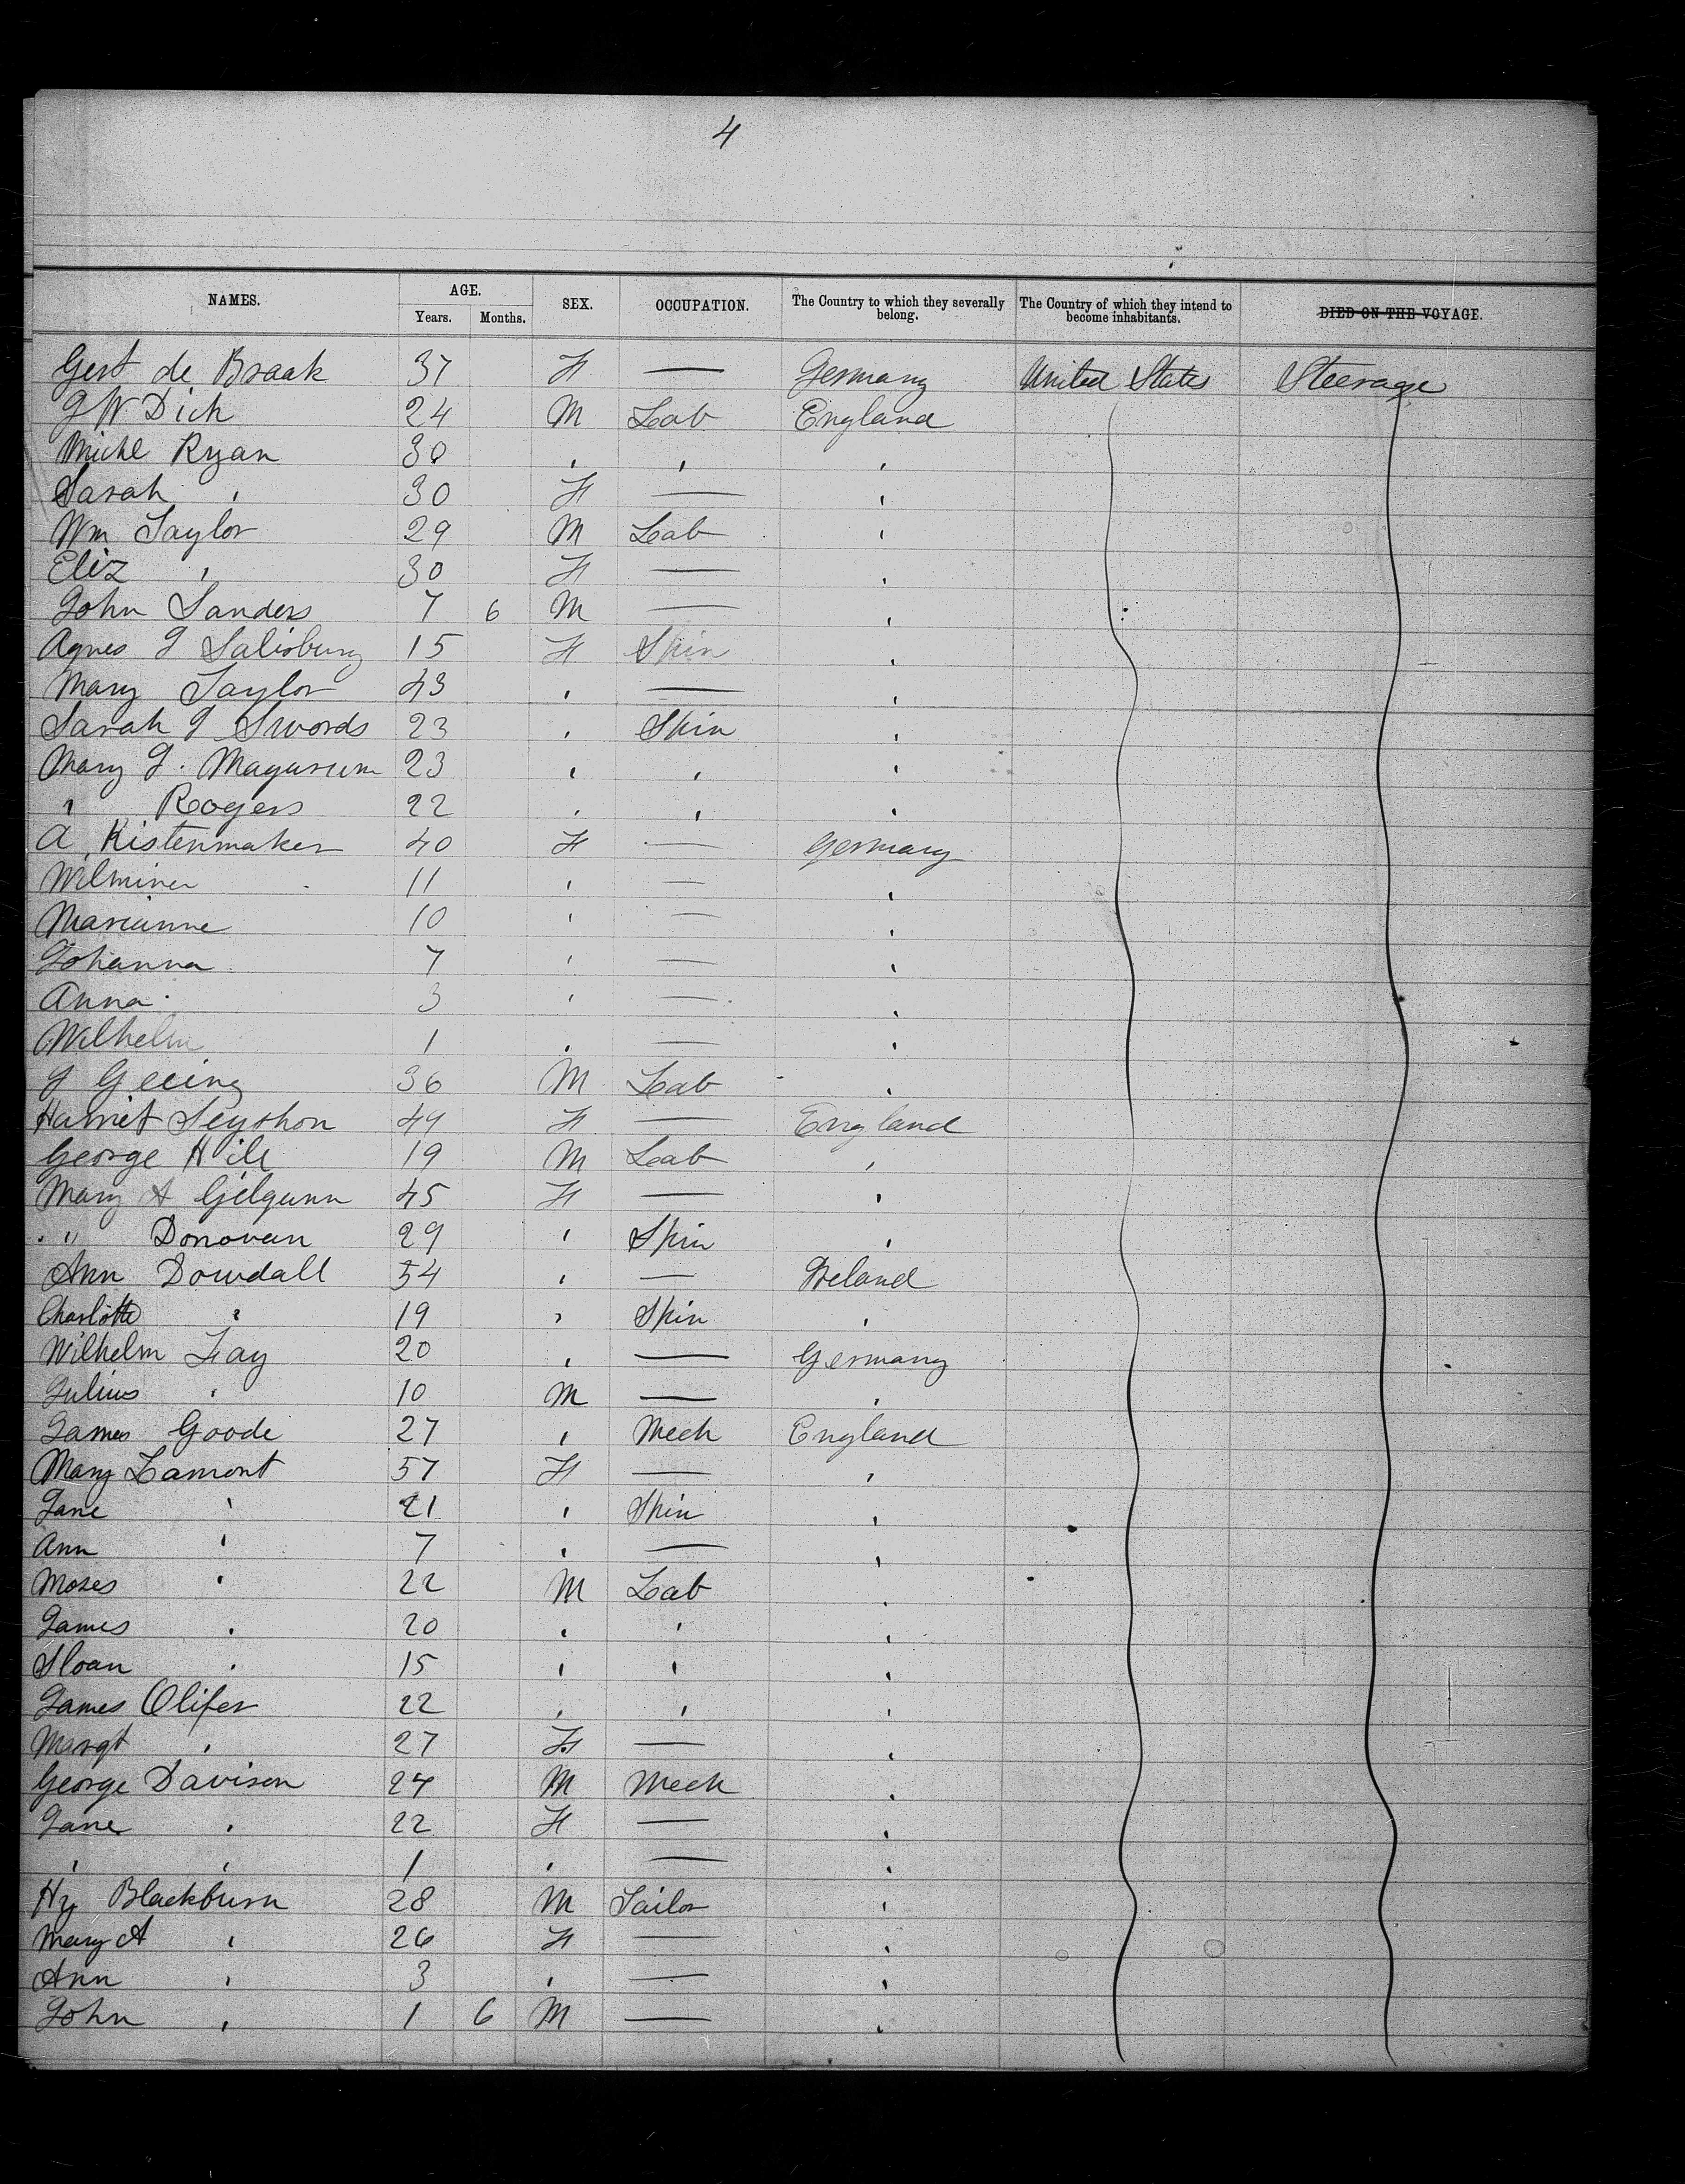 4
NAMES. AGE. Years. Months. SEX. OCCUPATION. The Country to which they severally belong. The Country of which they intend to become inhabitants. DIED ON THE VOYAGE.
Gert de Braak 37 F — Germany United States Steerage
J W Dick 24 M Lab England
Michl Ryan 30 " " "
Sarah " 30 F — "
Wm Taylor 29 M Lab "
Eliz " 30 F — "
John Sanders 7 6 M — "
Agnes J Salisbury 15 F Spin "
Mary Taylor 43 " — "
Sarah J Swords 23 " Spin "
Mary J. 23 " " "
" Rogers 22 " " "
A Kistenmaker 40 F — Germany
Wilmina 11 " — "
Marianne 10 " — "
Johanna 7 " — "
Anna 3 " — "
Wilhelm 1 " — "
J 36 M Lab "
Harriet Seyshon 49 F — England
George Hill 19 M Lab "
Mary A Gilgunn 45 F — "
" Donovan 29 " Spin "
Ann Dowdall 54 " — Ireland
Charlotte " 19 " Spin "
Wilhelm Fay 20 " — Germany
Julius " 10 M — "
James Goode 27 " Mech England
Mary Lamont 57 F — "
Jane " 21 " Spin "
Ann " 7 " — "
Moses " 22 M Lab "
James " 20 " " "
Sloan " 15 " " "
James Olifer 22 " " "
Margt " 27 F — "
George Davison 24 M Mech "
Jane " 22 F — "
" " 1 " — "
Hy Blackburn 28 M Tailor "
Mary A " 26 F — "
Ann " 3 " — "
John " 1 6 M — "